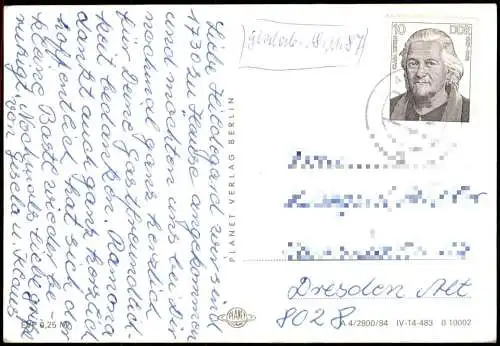 Liebe Hildegard wir sind
1730 zu Hause angekommen
und möchten uns bei Dir
nochmal ganz herzlich
für Deine Gastfreundlich-
keit bedanken. Ramona
dankt auch ganz herzlich
hoffentlich hat sich der
kleine Bastl wieder be-
ruhigt. Nochmals liebe Grüße
von Gisela u. Klaus
EVP 0,25 M
PLANET VERLAG BERLIN
10 DDR
Dresden Alt.
8028
A 4/2800/84 IV-14-483 0 10002